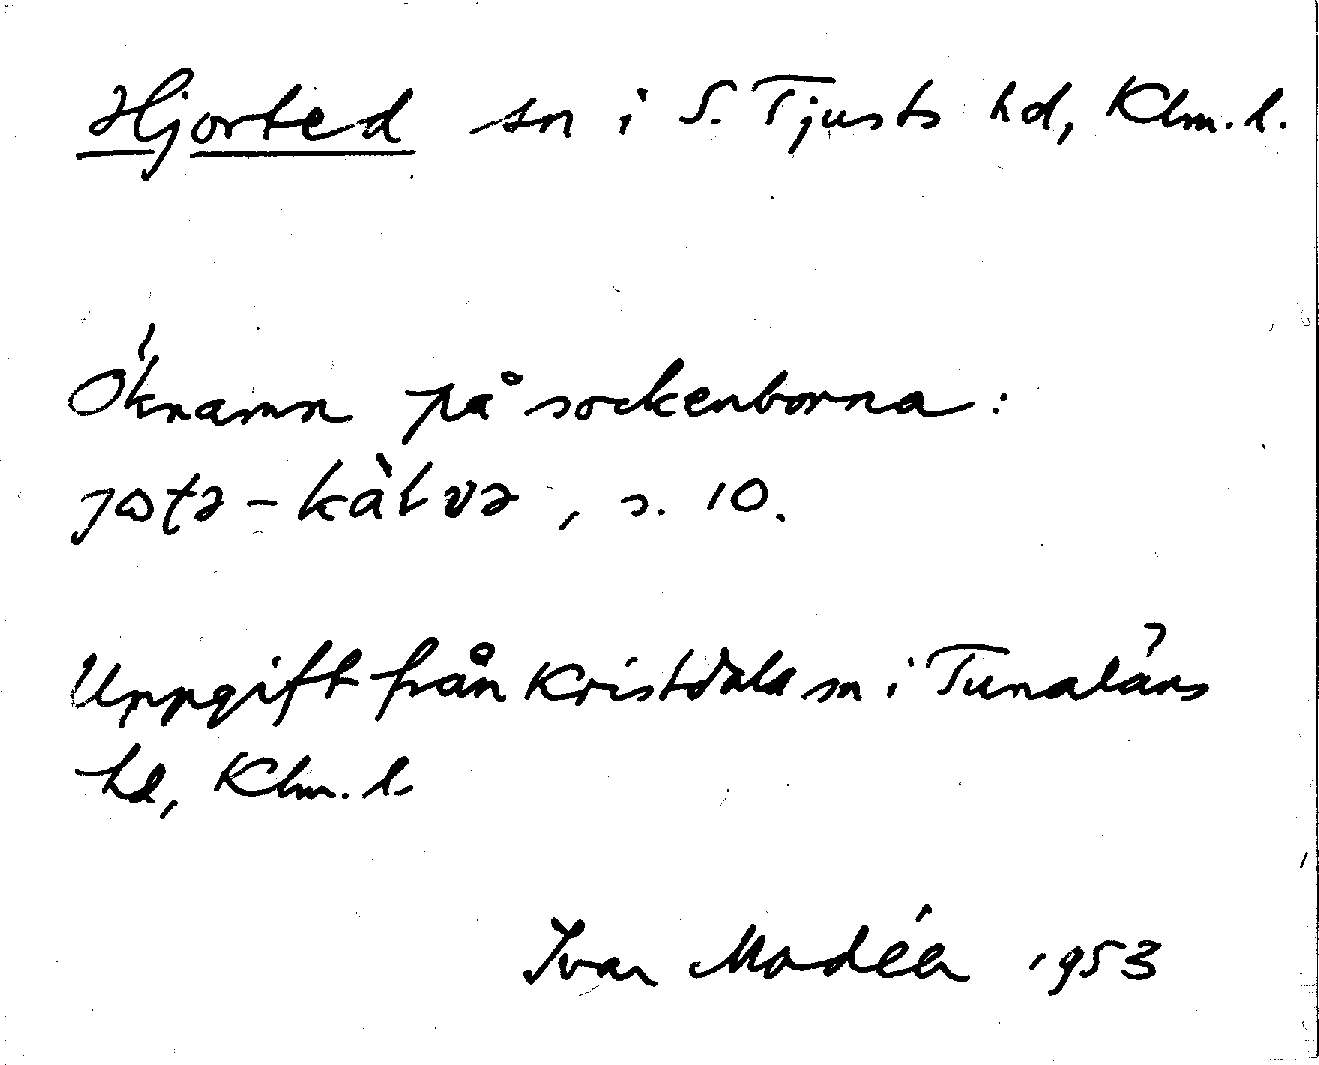 Hjorted sn i S. Tjusts hd, Klm. l.
Öknamn på sockenborna:
jɷtə-kàlvə, s. 10.
Uppgift från Kristdala sn i Tunaläns
hd, Klm. l.
Ivar Modéer 1953